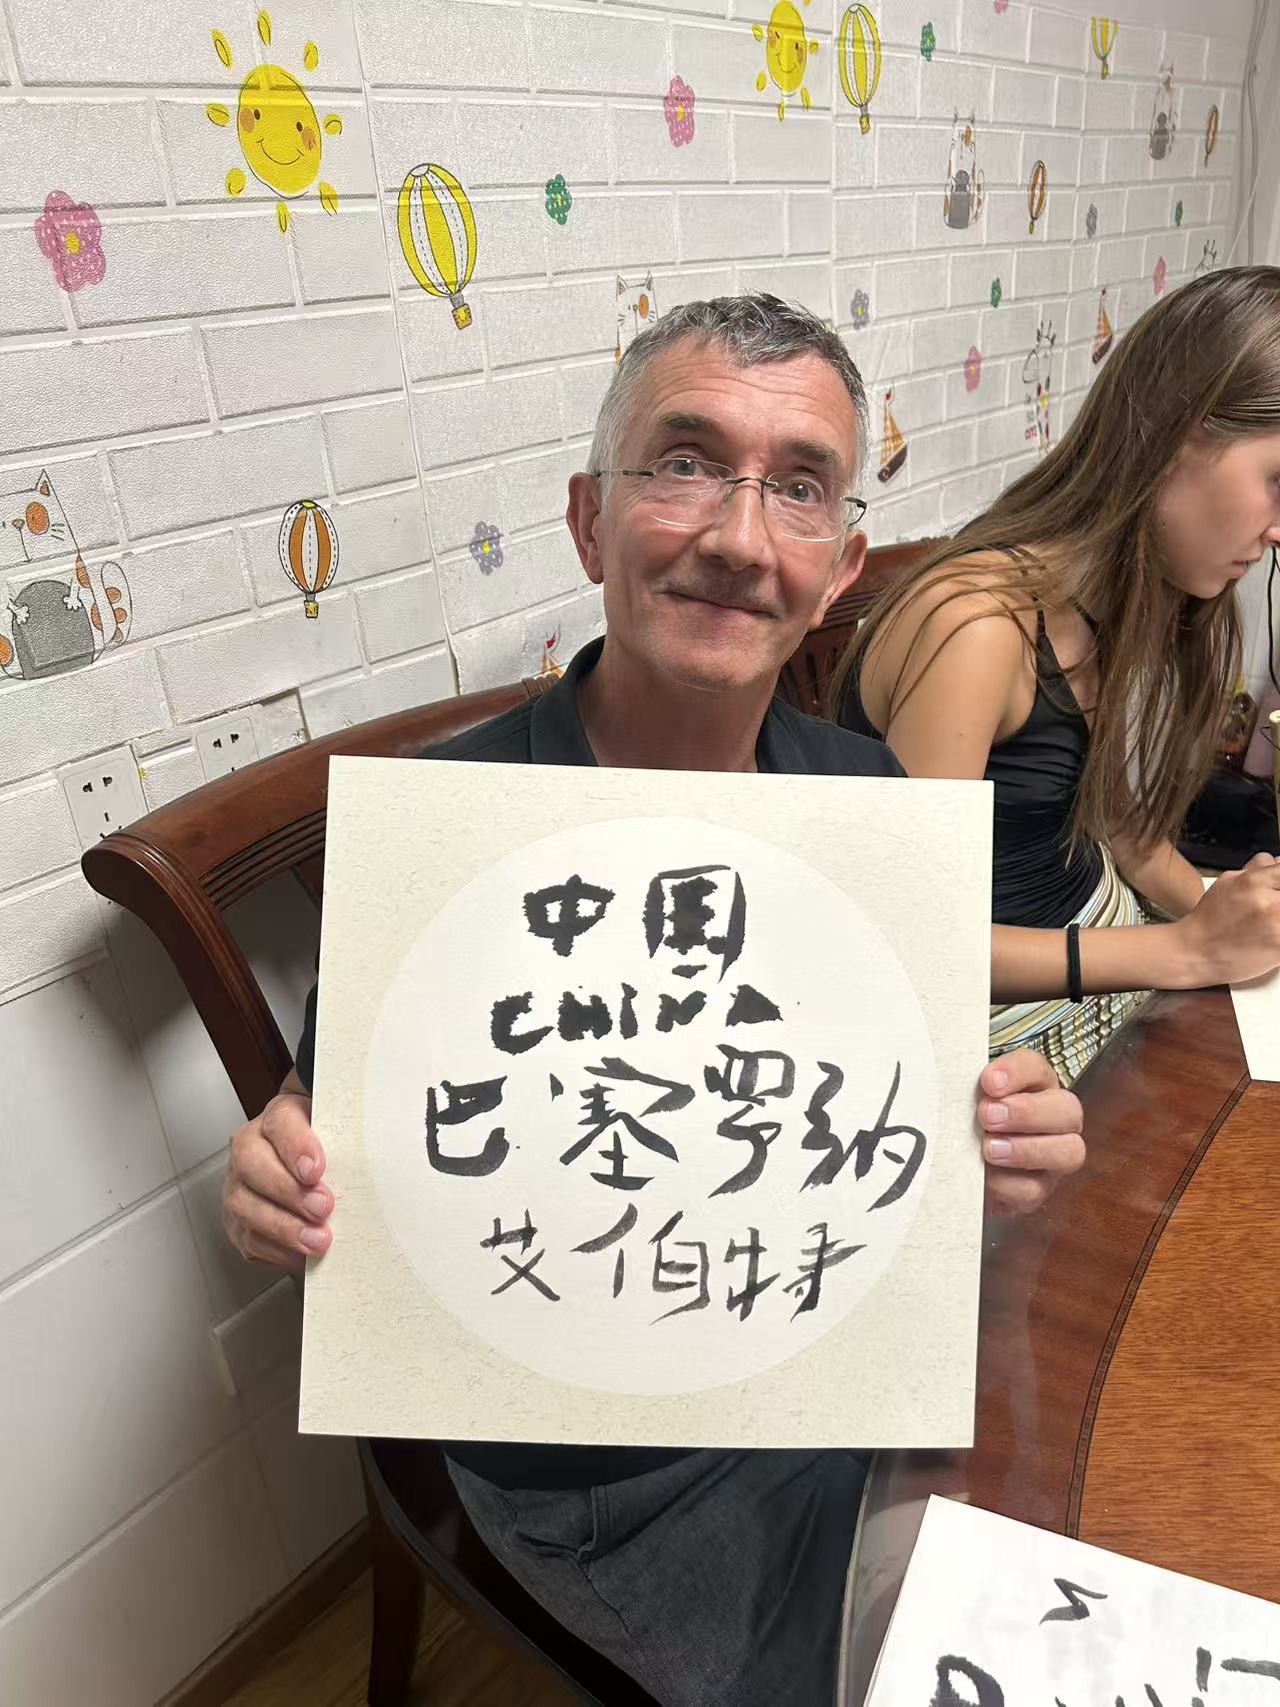 中国
CHINA
巴塞罗纳
艾伯特